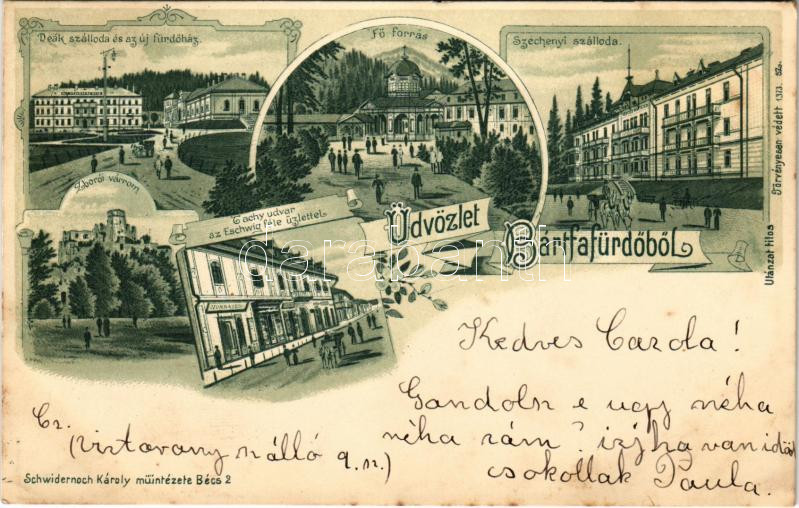 Deák szálloda és az új fürdőház.
Fő forrás
Széchenyi szálloda.
Zborói várrom
Tachy udvar
az Eschwig féle üzlettel.
Üdvözlet
Bártfafürdőből
Törvényesen védett 1373. sz.
Utánzat tilos
darabanth
Kedves Carola!
Gondolsz e ugy néha
néha rám? irj ha van időd
csokollak Paula.
Cz.
szálló 9. sz.)
Schwidernoch Károly műintézete Bécs 2